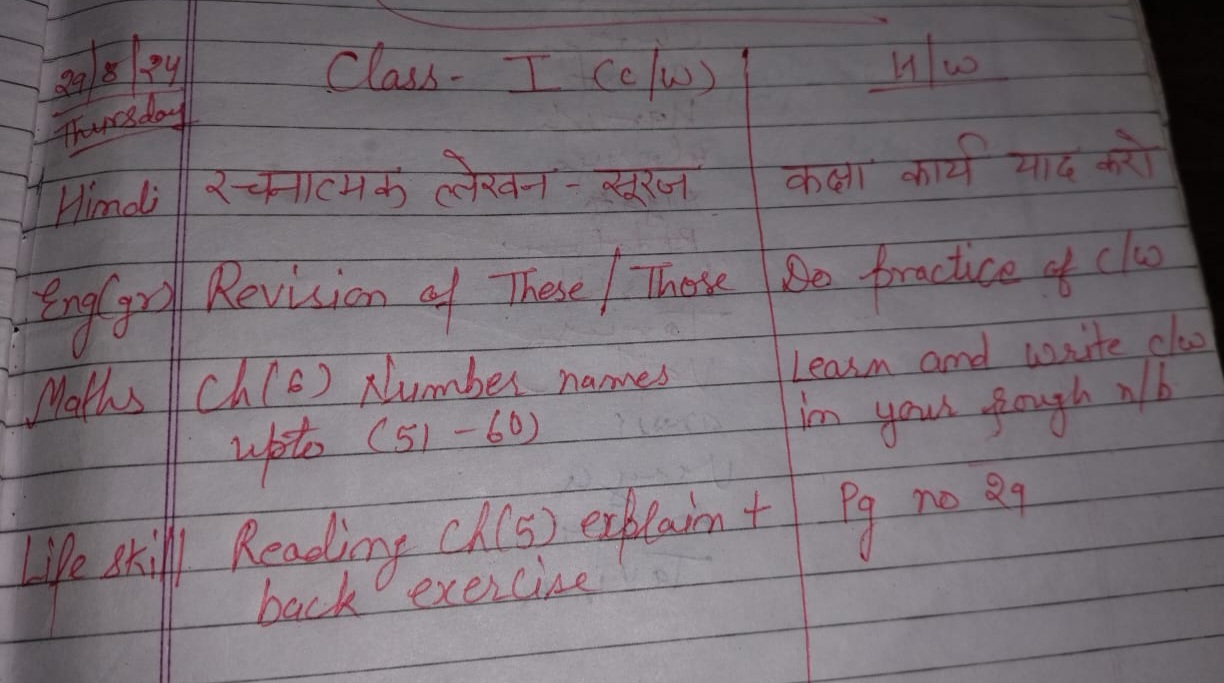 29/8/24 Class - I (c/w) H/w
Thursday
Hindi रचनात्मक लेखन - सूरज कक्षा कार्य याद करो
Eng(gr) Revision of These / Those Do practice of c/w
Maths Ch(6) Number names Learn and write c/w
upto (51 - 60) in your rough n/b
Life skill Reading Ch(5) explain + Pg no 29
back exercise